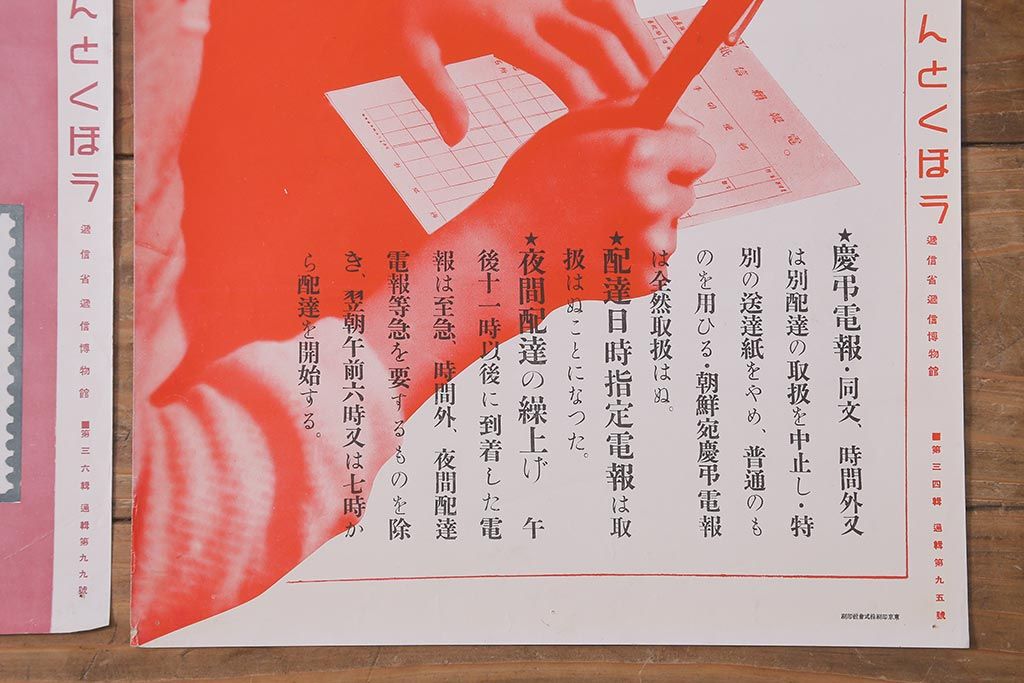 んとくほう
遞信省遞信博物館
■第三四輯 通輯第九五號
★慶弔電報・同文、時間外又
は別配達の取扱を中止し・特
別の送達紙をやめ、普通のも
のを用ひる・朝鮮宛慶弔電報
は全然取扱はぬ。
★配達日時指定電報は取
扱はぬことになつた。
★夜間配達の繰上げ 午
後十一時以後に到着した電
報は至急、時間外、夜間配達
電報等急を要するものを除
き、翌朝午前六時又は七時か
ら配達を開始する。
電報頼信紙
東京印刷株式會社印刷
んとくほう
遞信省遞信博物館
■第三六輯 通輯第九九號